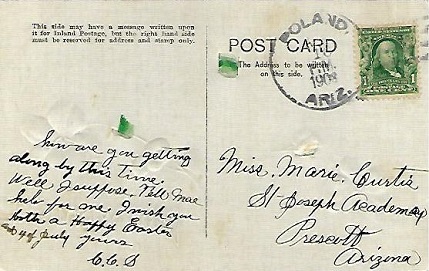 This side may have a message written upon
it for Inland Postage, but the right hand side
must be reserved for address and stamp only.
POST CARD
The Address to be written
on this side.
POLAND,
1908
ARIZ.
1
how are you getting
along by this time.
Well I suppose. Tell Mae
help for one I wish you
both a Happy Easter
and 4 of July yours
C.C.S
Miss. Marie. Curtis
St Joseph Academay
Prescott
Arizona